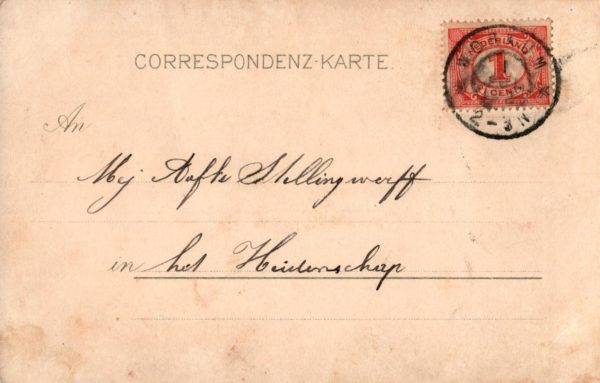 CORRESPONDENZ-KARTE.
NEDERLAND
1
CENT
2-3N
An
Mej Aafke Stellingwerff
in het Heidenschap